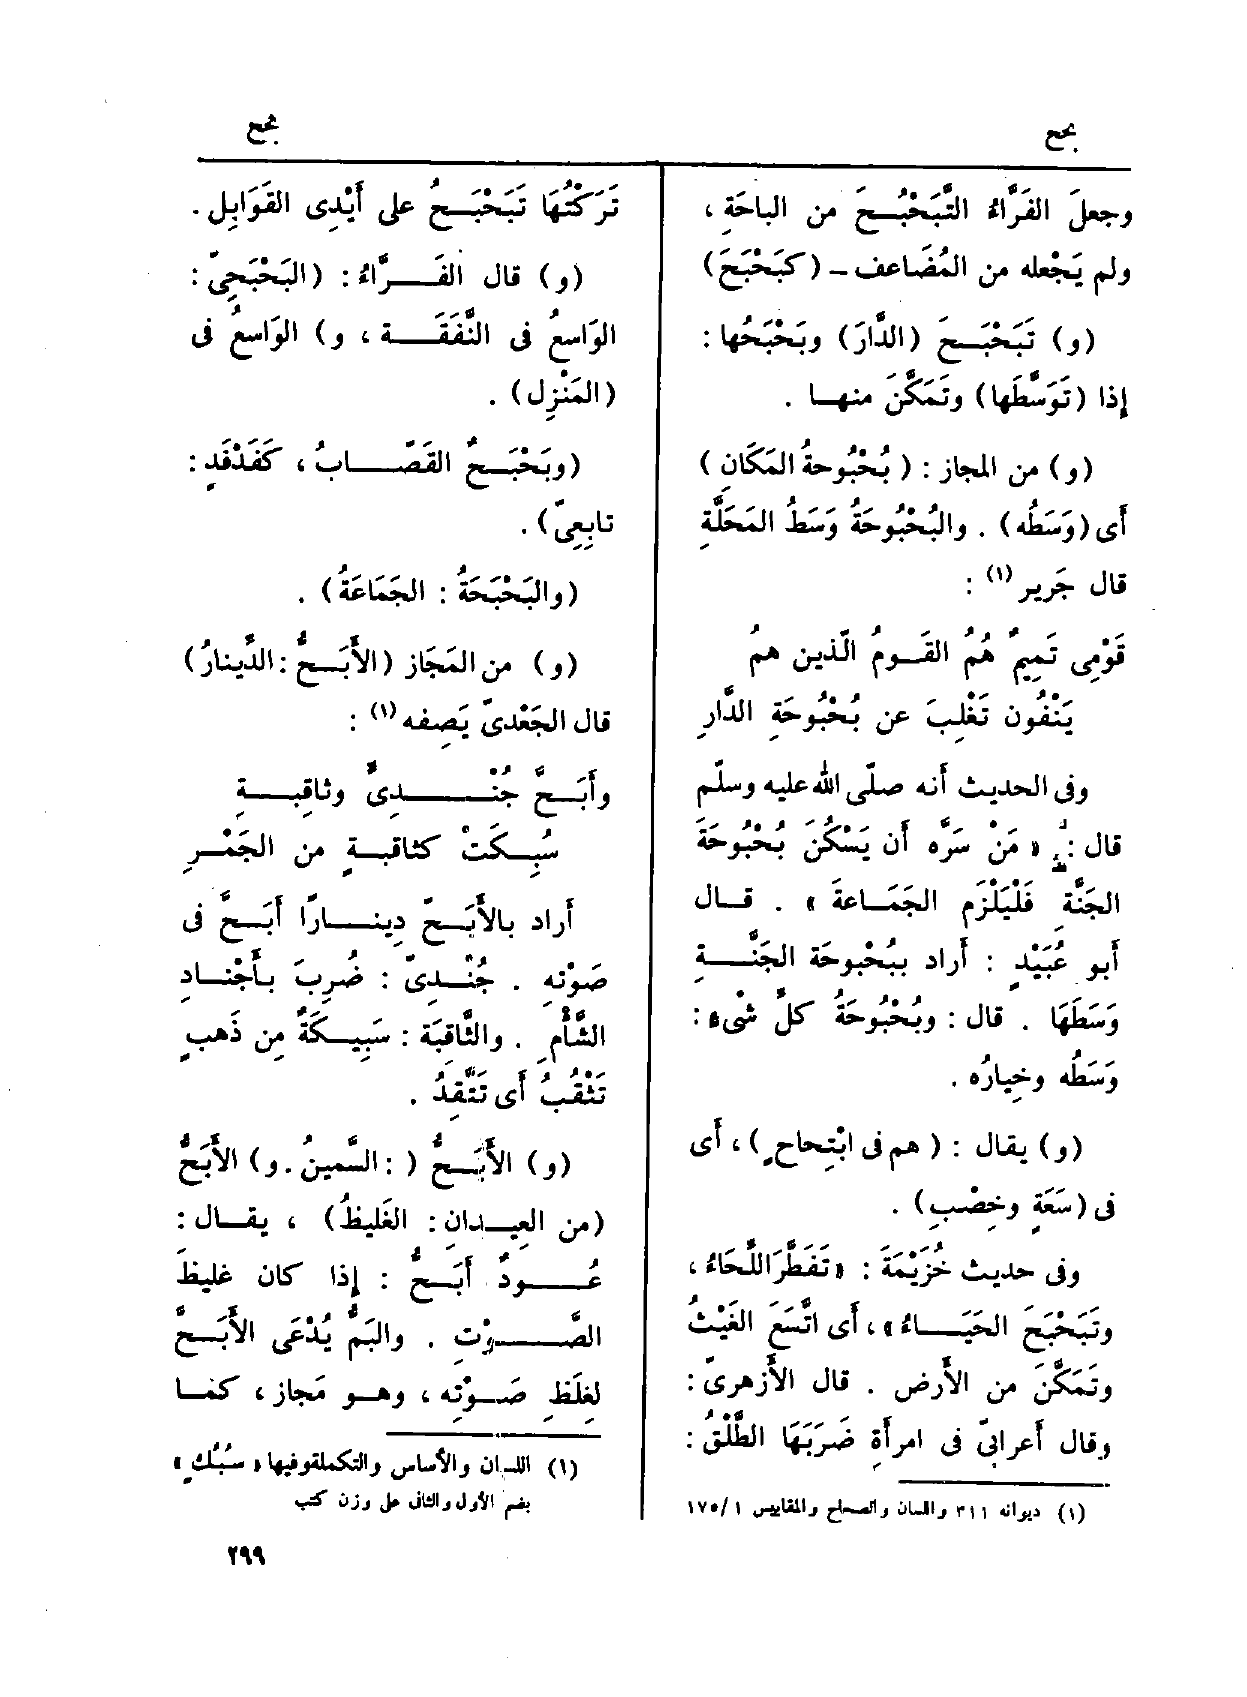 بحح
بحح
وجعلَ الفَرَّاءُ التَّبَحْبُــحَ من الباحَةِ،
ولم يَجْعله من المُضَاعف ــ (كبَحْبَحَ)
(و) تَبَحْبَــحَ (الدَّارَ) وبَحْبَحُها:
إذا (تَوَسَّطَها) وتَمَكَّنَ منهــا .
(و) من المجاز : (بُحْبُوحةُ المَكَانِ)
أى (وَسَطُه) . والبُحْبُوحَةُ وَسَطُ المَحَلَّةِ
قال جَرير (١) :
قَوْمِى تَمِيمٌ هُمُ القَــومُ الّذين همُ
يَنْفُون تَغْلِبَ عن بُحْبُوحَةِ الدَّارِ
وفى الحديث أنه صلّى الله عليه وسلّم
قال : « مَنْ سَرَّه أن يَسْكُنَ بُحْبُوحَةَ
الجَنَّةِ فَلْيَلْزَمِ الجَمَــاعةَ » . قــال
أبو عُبَيْدٍ : أراد ببُحْبوحَة الجَنَّــــةِ
وَسَطَهَا . قال : وبُحْبُوحَةُ كلِّ شْىءٍ :
وَسَطُه وخيارُه .
(و) يقال : (هم فى ابْتِحاحٍ)، أى
فى (سَعَةٍ وخِصْبٍ) .
وفى حديث خُزَيْمَةَ : «تَفَطَّرَ اللِّحَاءُ،
وتَبَحْبَحَ الحَيَــــاءُ»، أى اتَّسَعَ الغَيْثُ
وتَمَكَّنَ من الأَرض . قال الأَزهرىّ :
وقال أَعرابىّ فى امرأَةٍ ضَرَبَهَا الطَّلْقُ :
(١) ديوانه ٣١١ واللسان والصحاح والمقاييس ١/١٧٥
تَرَكْتُهَا تَبَحْبَــحُ على أَيْدِى القَوَابِلِ .
(و) قال الفَــــرَّاءُ : (البَحْبَحِىّ :
الوَاسعُ فى النَّفَقَــــة ، و) الوَاسعُ فى
(المَنْزِل) .
(وبَحْبَــحٌ القَصّــــابُ، كفَدْفَدٍ :
تابِعِىّ) .
(والبَحْبَحَةُ : الجَمَاعَةُ) .
(و) من المَجَاز (الأَبَــحُّ : الدِّينارُ)
قال الجَعْدىّ يَصِفه (١) :
وأَبَــحَّ جُنْــــــدِىٍّ وثاقِبــــةٍ
سُبِــكَتْ كثاقبــةٍ من الجَمْــرِ
أراد بالأَبَــحّ دِينــــارًا أَبَــحَّ فى
صَوْته . جُنْــدِىّ : ضُرِبَ بأَجْنــادِ
الشَّأْمِ . والثَّاقبَة : سَبِيــكَةٌ مِن ذَهبٍ
تَثْقُبُ أى تَتَّقِدُ .
(و) الأَبَــحُّ ( : السَّمينُ . و) الأَبَحُّ
(من العِيــدانِ : الغَليظُ) ، يقــال :
عُــــودٌ أَبَــحُّ : إذا كان غليظَ
الصَّــــوْتِ . والبَمُّ يُدْعَى الأَبَــحَّ
لغِلَظِ صَــوْتِه ، وهــو مَجاز ، كمــا
(١) اللسان والأساس والتكملة وفيها « سُبُكٍ »
بضم الأول والثانى على وزن كتب
٢٩٩